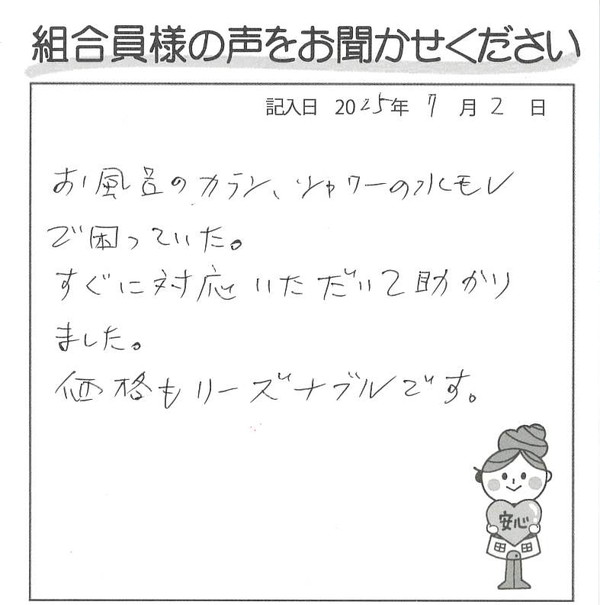 組合員様の声をお聞かせください
記入日 2025年 7月 2日
お風呂のカラン、シャワーの水モレ
で困っていた。
すぐに対応いただいて助かり
ました。
価格もリーズナブルです。
安心